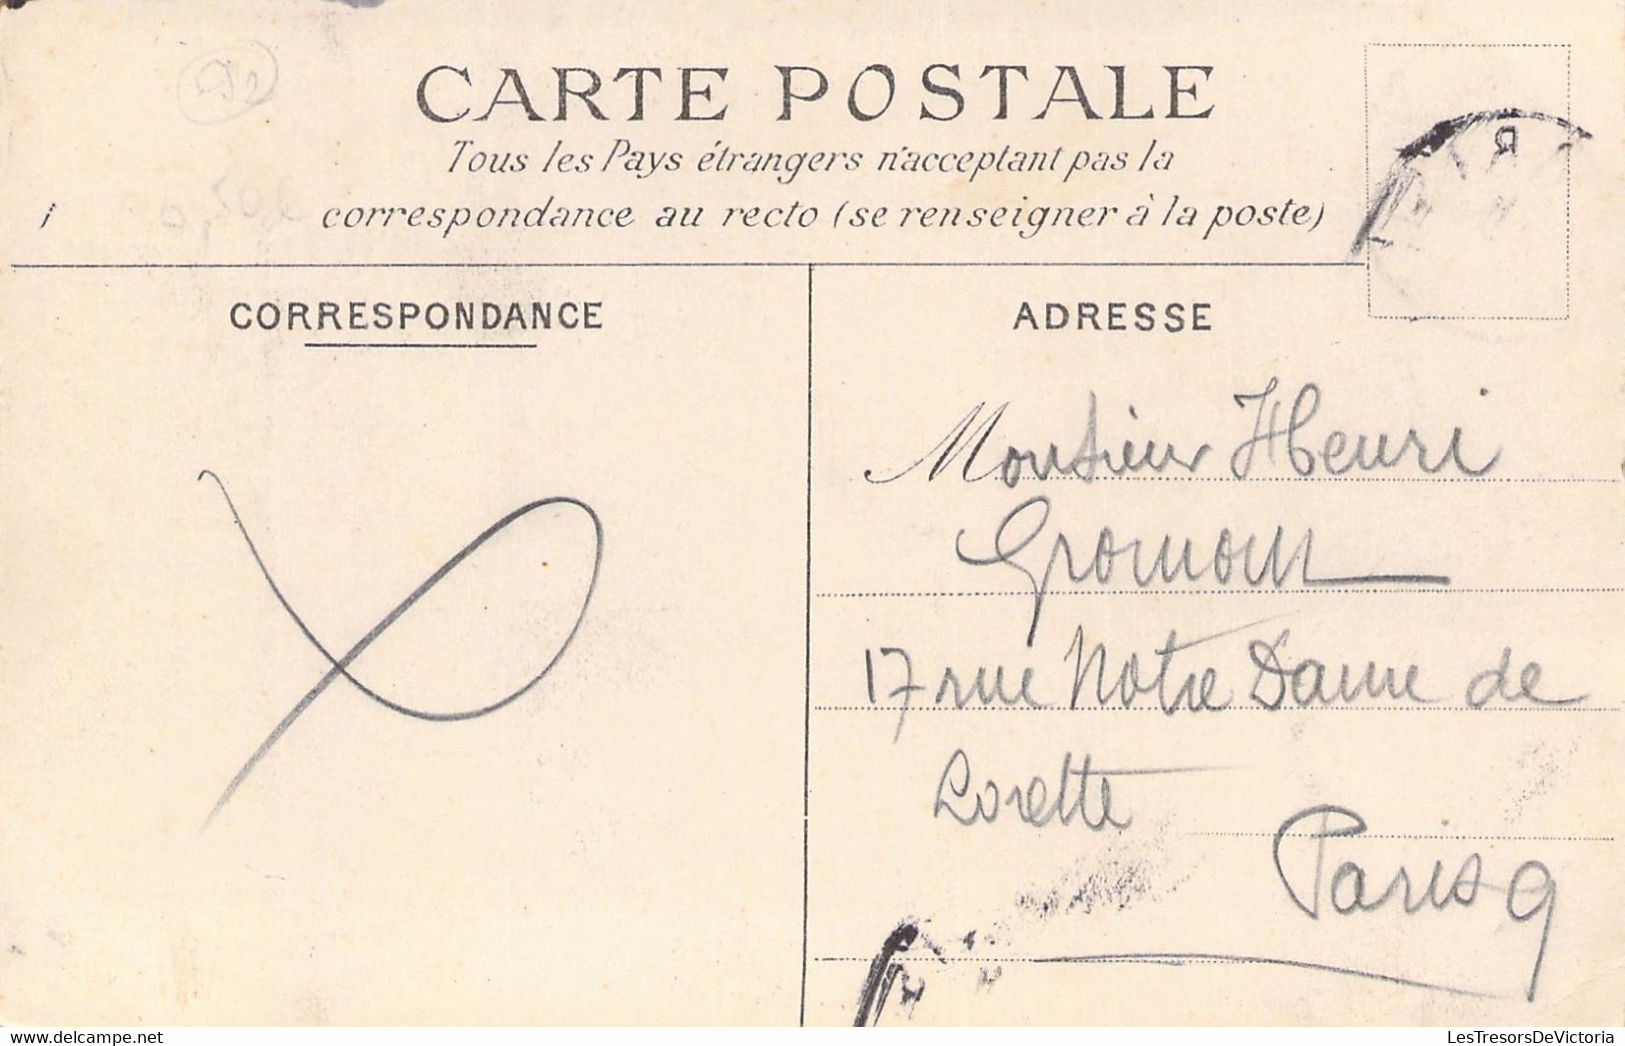 CARTE POSTALE
Tous les Pays étrangers n'acceptant pas la
correspondance au recto (se renseigner à la poste)
CORRESPONDANCE
ADRESSE
Monsieur Henri
17 rue Notre Dame de
Lorette
Paris 9
LesTresorsDeVictoria